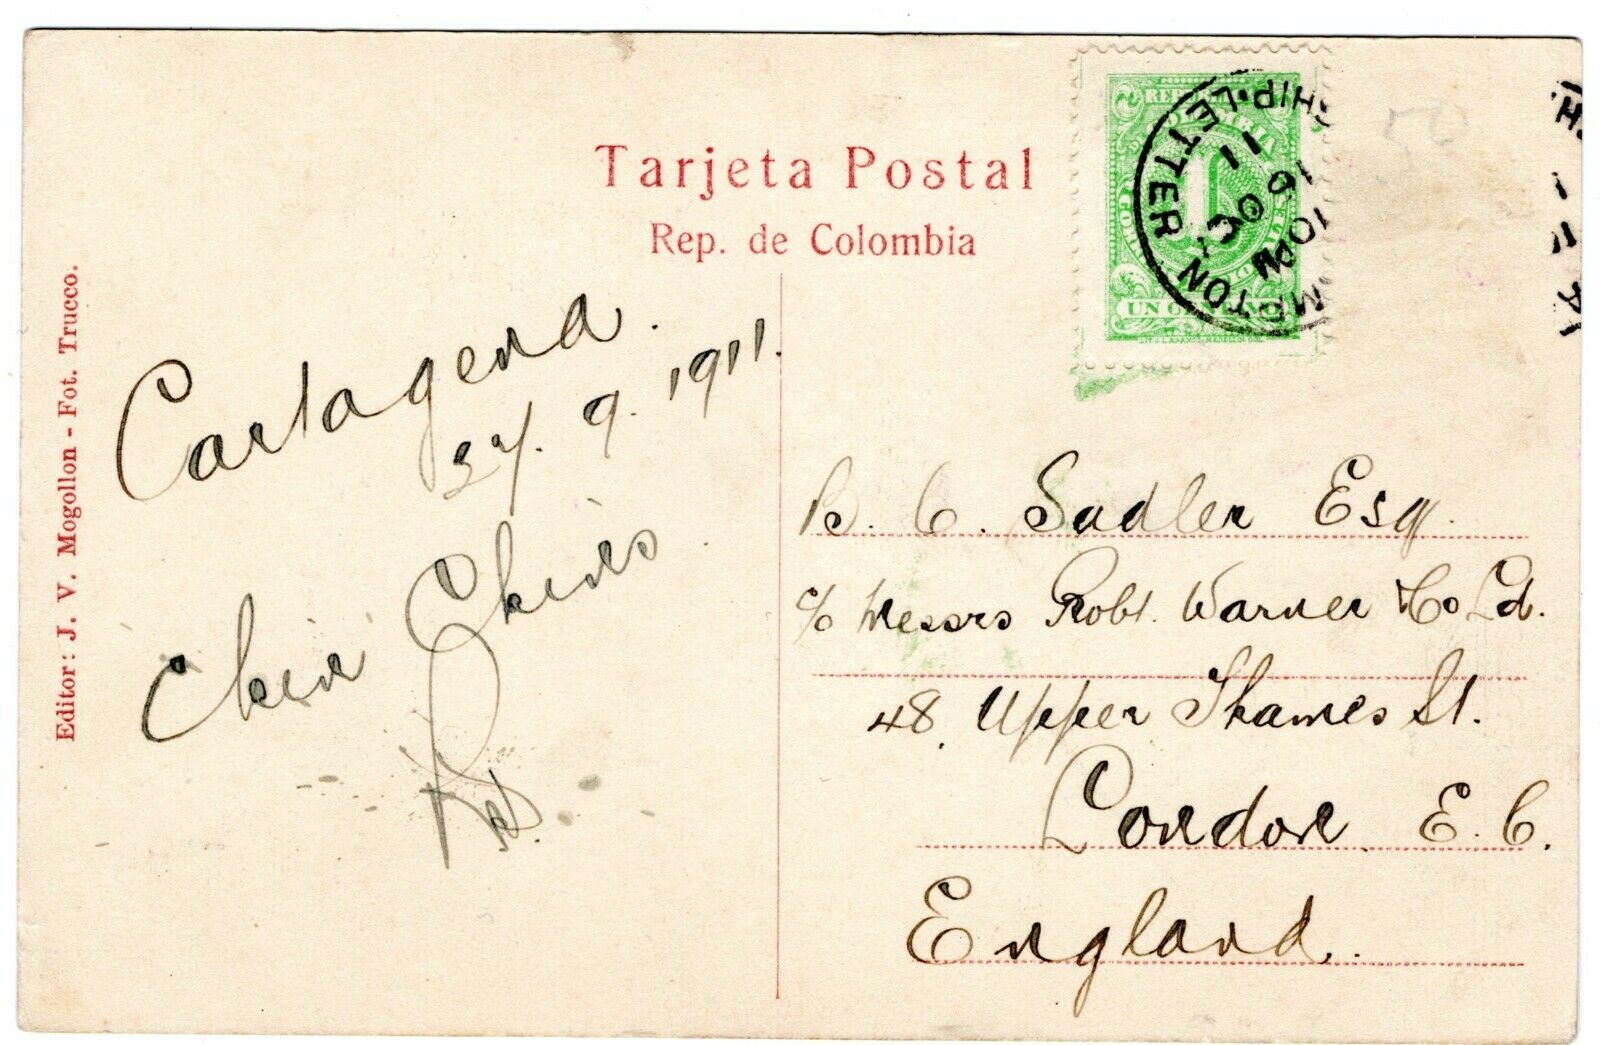 Tarjeta Postal
Rep. de Colombia
Editor: J. V. Mogollon - Fot. Trucco.
Cartagena.
27. 9. 1911.
Chin Chins.
B. C. Sadler Esq.
c/o Messrs Robt. Warner & Co Ld.
48, Upper Thames St.
London. E. C.
England.
UN CENTAVO
1
MPTON SHIP LETTER
10 PM
OC
11